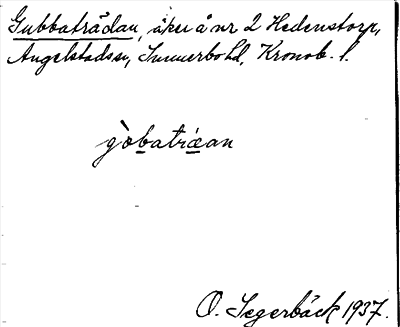 Gubbaträdan, åker å nr 2 Hedenstorp,
Angelstads sn, Sunnerbo hd, Kronob. l.
gòbatrǽan
O. Segerbäck 1937.